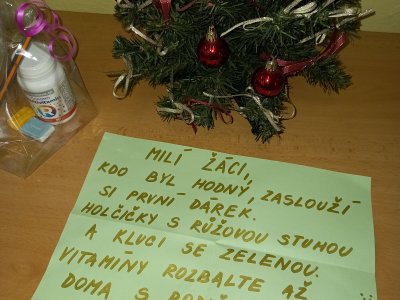 MILÍ ŽÁCI,
KDO BYL HODNÝ, ZASLOUŽÍ
SI PRVNÍ DÁREK.
HOLČIČKY S RŮŽOVOU STUHOU
A KLUCI SE ZELENOU.
VITAMÍNY ROZBALTE AŽ
DOMA S